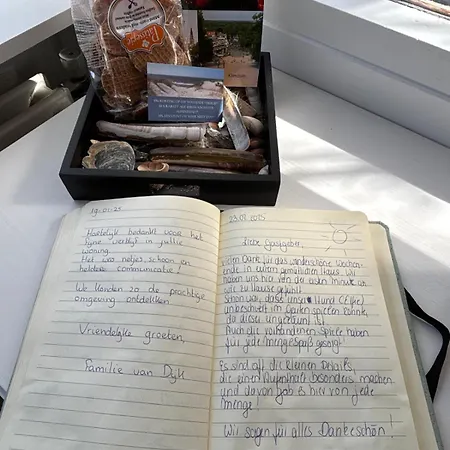 19-01-25
Hartelijk bedankt voor het
fijne verblijf in jullie
woning.
Het was netjes, schoon en
heldere communicatie!
We konden zo de prachtige
omgeving ontdekken.
Vriendelijke groeten,
Familie van Dijk
23.02.2025
Liebe Gastgeber,
vielen Dank für das wunderschöne Wochen-
ende in eurem gemütlichen Haus. Wir
haben uns hier von der ersten Minute an
wie zu Hause gefühlt.
Schön war, dass unser Hund
unbeschwert im Garten spielen konnte,
da dieser umzäunt ist.
Auch die vorhandenen Spiele haben
für jede Menge Spaß gesorgt!
Es sind oft die kleinen Details,
die einen Aufenthalt besonders machen
und davon gab es hier von jede
Menge!
Wir sagen für alles Dankeschön!